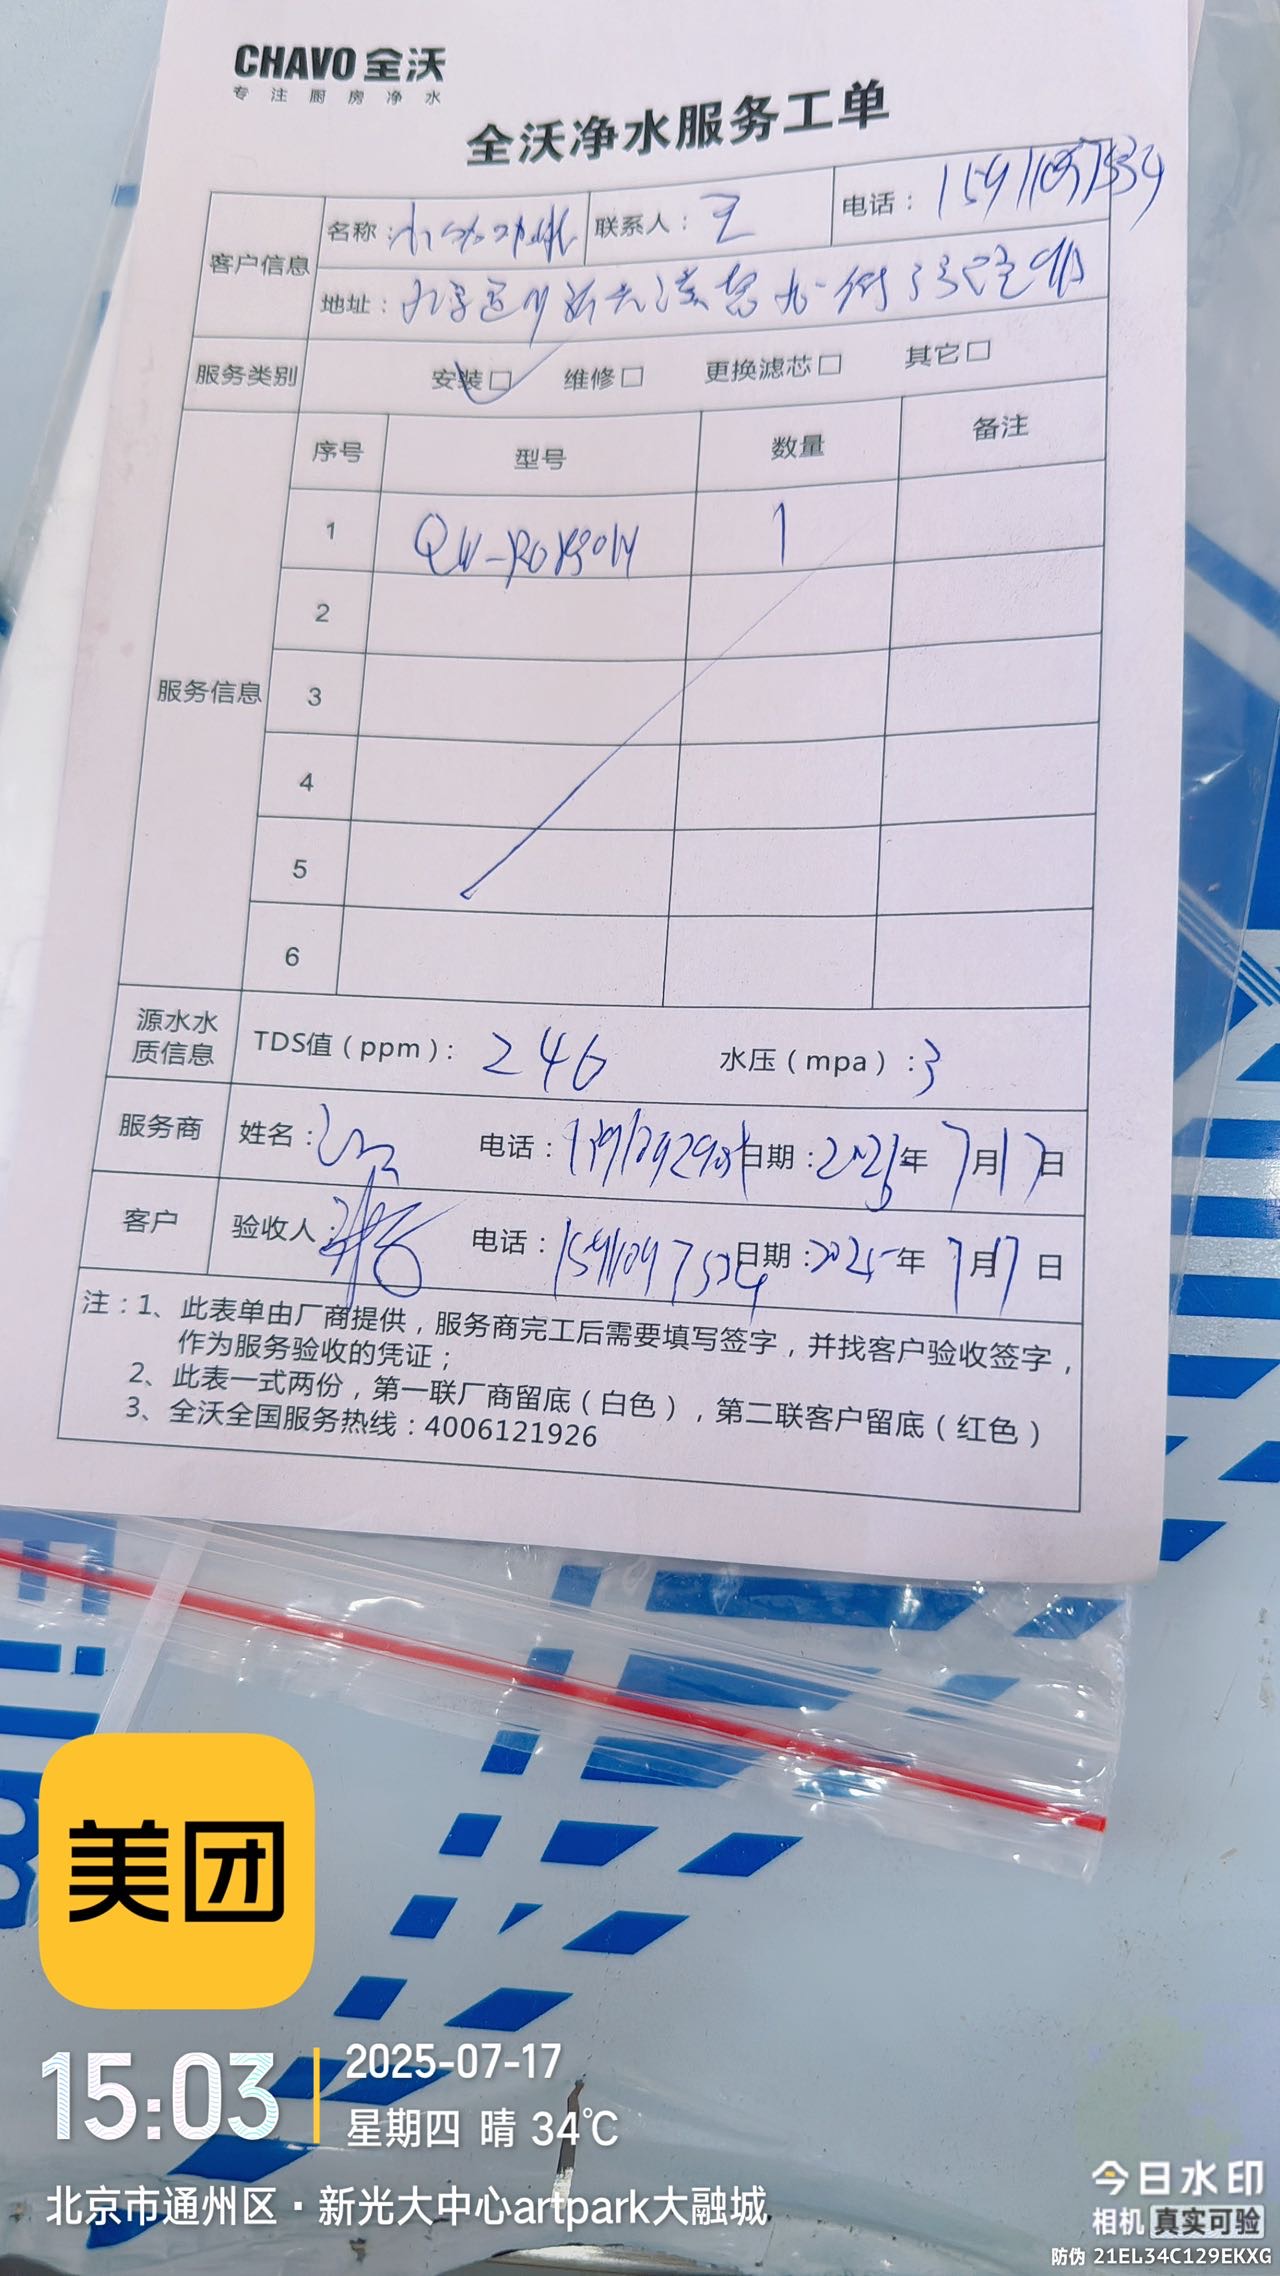 CHAVO 全沃
专注厨房净水
全沃净水服务工单
客户信息 名称： 联系人：王 电话：
地址：
服务类别 安装□ 维修□ 更换滤芯□ 其它□
服务信息 序号 型号 数量 备注
1 1
2
3
4
5
6
源水水质信息 TDS值（ppm）：246 水压（mpa）：3
服务商 姓名： 电话： 日期：2025年7月17日
客户 验收人： 电话： 日期：2025年7月17日
注：1、此表单由厂商提供，服务商完工后需要填写签字，并找客户验收签字，
作为服务验收的凭证；
2、此表一式两份，第一联厂商留底（白色），第二联客户留底（红色）
3、全沃全国服务热线：4006121926
美团
15:03
2025-07-17
星期四 晴 34℃
北京市通州区·新光大中心artpark大融城
今日水印
相机 真实可验
防伪 21EL34C129EKXG